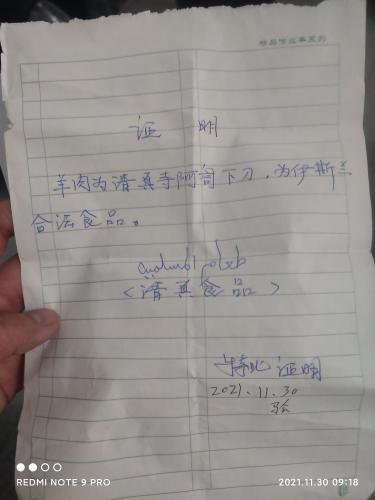 证 明
羊肉为清真寺阿訇下刀，为伊斯兰
合法食品。
<清真食品>
特此证明
2021.11.30
REDMI NOTE 9 PRO
2021.11.30 09:18